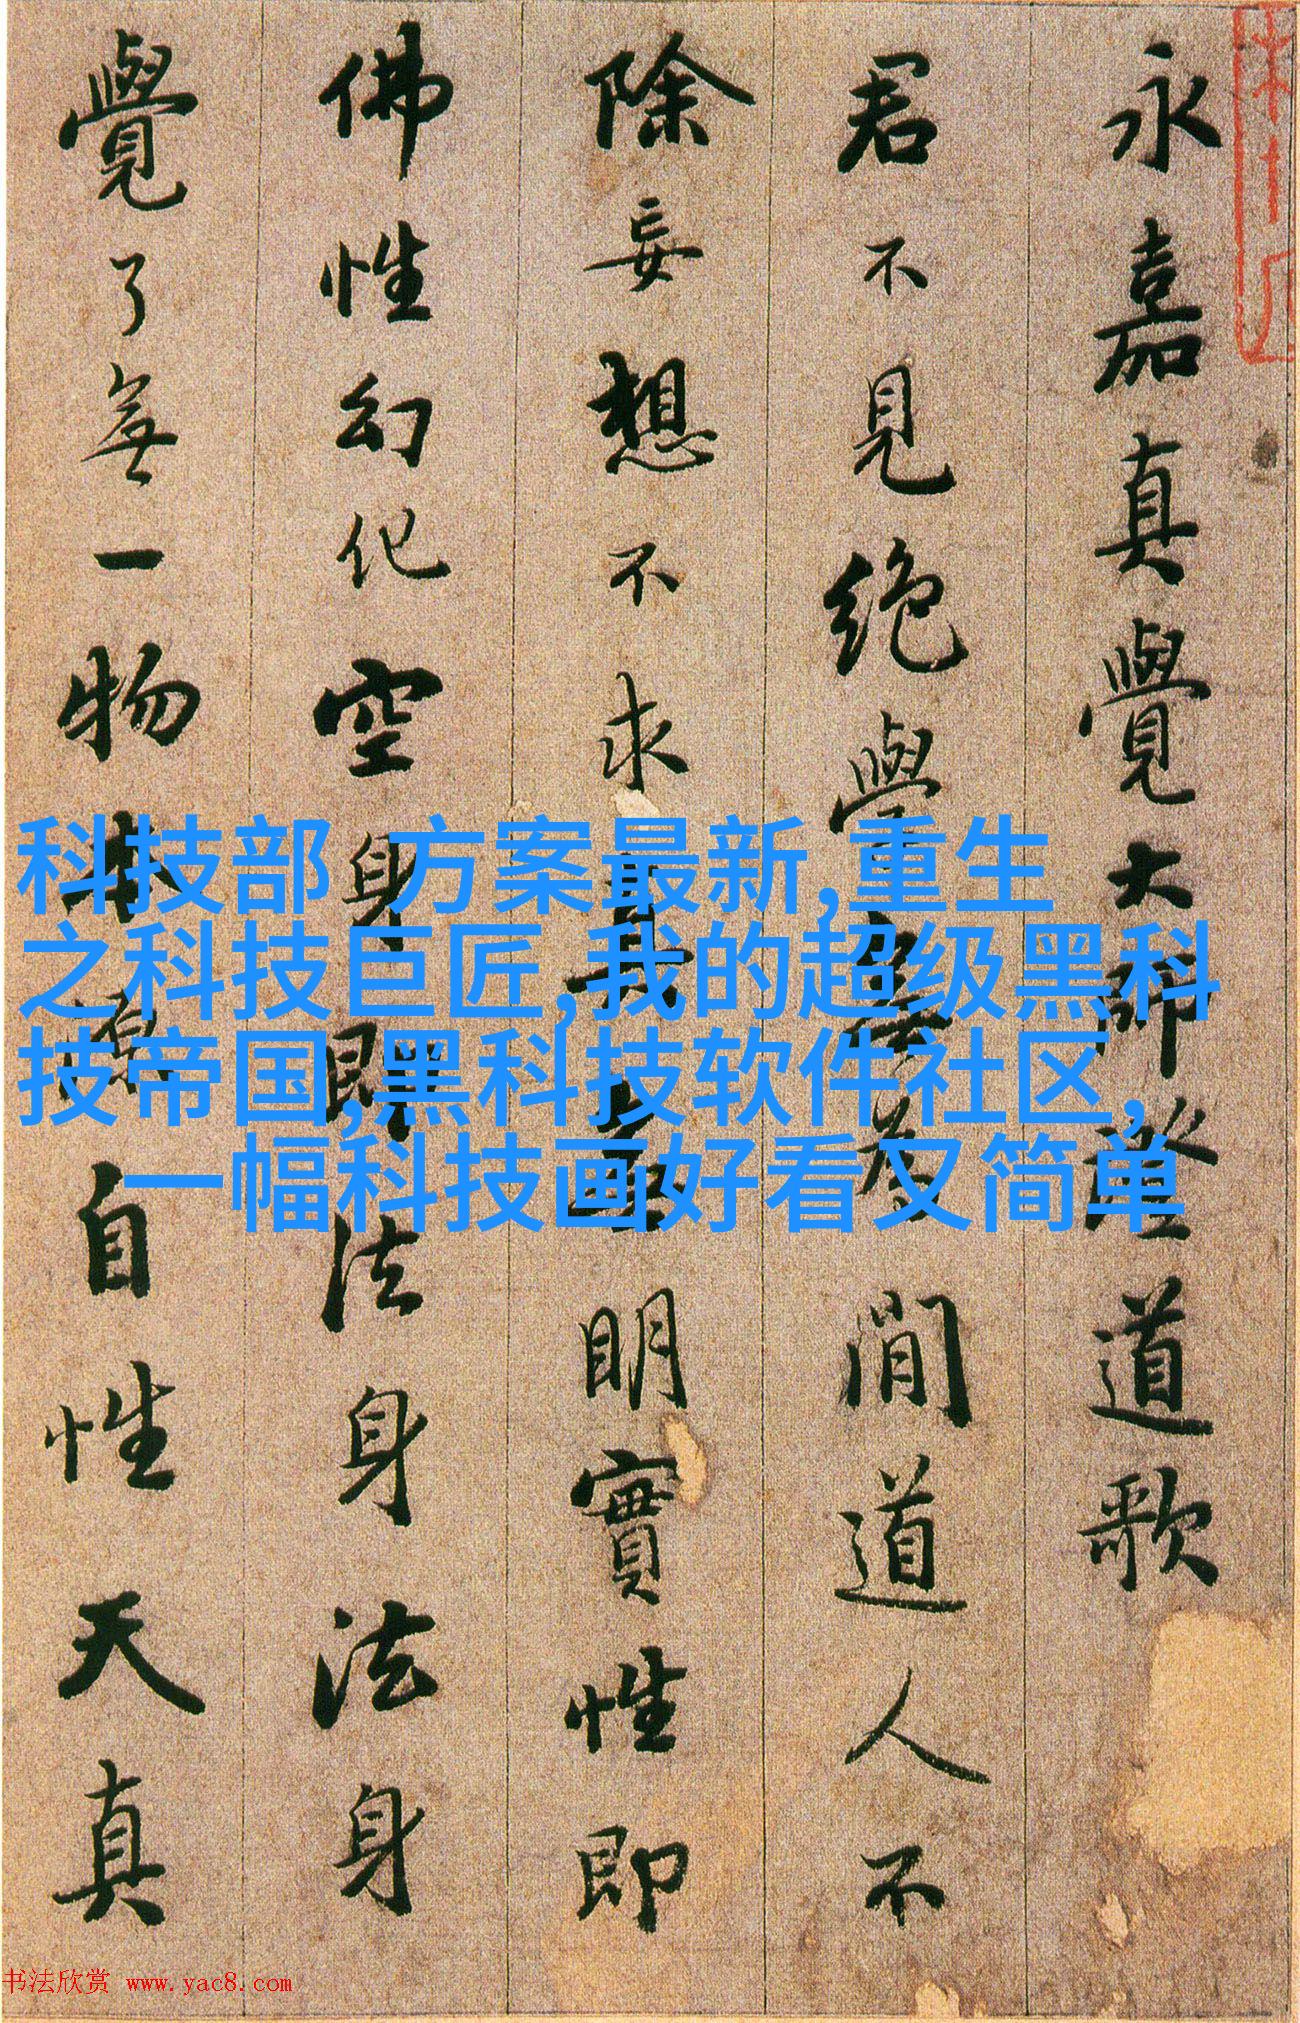 永嘉真覺大師證道歌
君不見絶學無為閒道人不
除妄想不求真無明實性即
佛性幻化空身即法身法身
覺了無一物本源自性天真
科技部 方案最新,重生
之科技巨匠,我的超级黑科
技帝国,黑科技软件社区,
一幅科技画好看又简单
书法欣赏 www.yac8.com